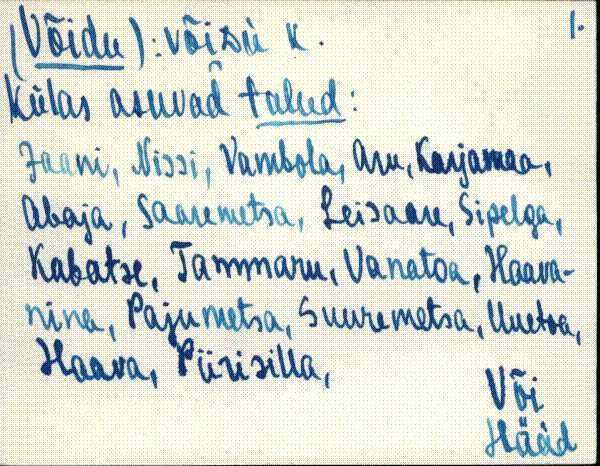 1.
(Võidu): võisü k.
Külas asuvad talud:
Jaani, Nissi, Vambola, Aru, Karjamaa,
Abaja, Saaremetsa, Leisaare, Sipelga,
Kabatse, Tammaru, Vanatoa, Haava-
nina, Pajumetsa, Suuremetsa, Uuetoa,
Haava, Piirisilla,
Või
Hääd